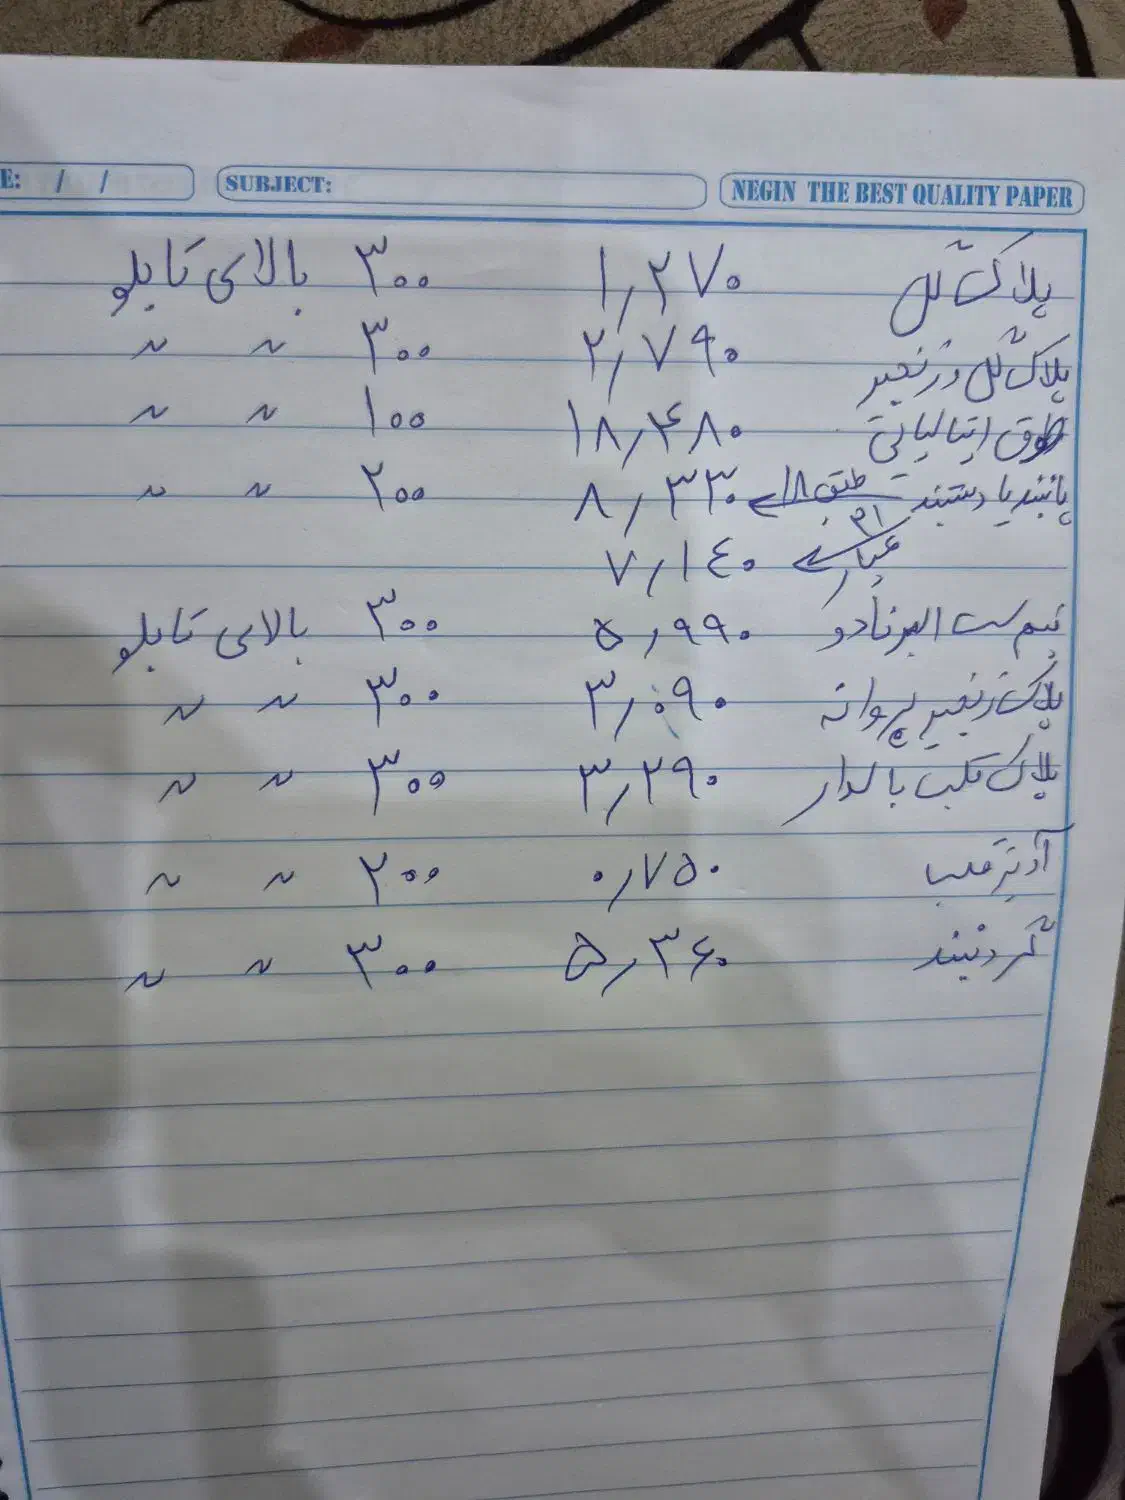 E: / /
SUBJECT:
NEGIN THE BEST QUALITY PAPER
پلاک گل ۱٫۲۷۰ ۳۰۰ بالای تابلو
پلاک گل و زنجیر ۲٫۷۹۰ ۳۰۰ 〃 〃
طوق ایتالیایی ۱۸٫۴۸۰ ۱۰۰ 〃 〃
پابند یا دستبند طبق ۱۸ ۸٫۳۳۰ ۲۰۰ 〃 〃
عیار ۲۱ ۷٫۱٤۰
نیم ست البرنادو ۵٫۹۹۰ ۳۰۰ بالای تابلو
پلاک زنجیر پروانه ۳٫۰۹۰ ۳۰۰ 〃 〃
پلاک قلب بالدار ۳٫۲۹۰ ۳۰۰ 〃 〃
آویز قلب ۰٫۷۵۰ ۲۰۰ 〃 〃
گردنبند ۵٫۳۶۰ ۳۰۰ 〃 〃